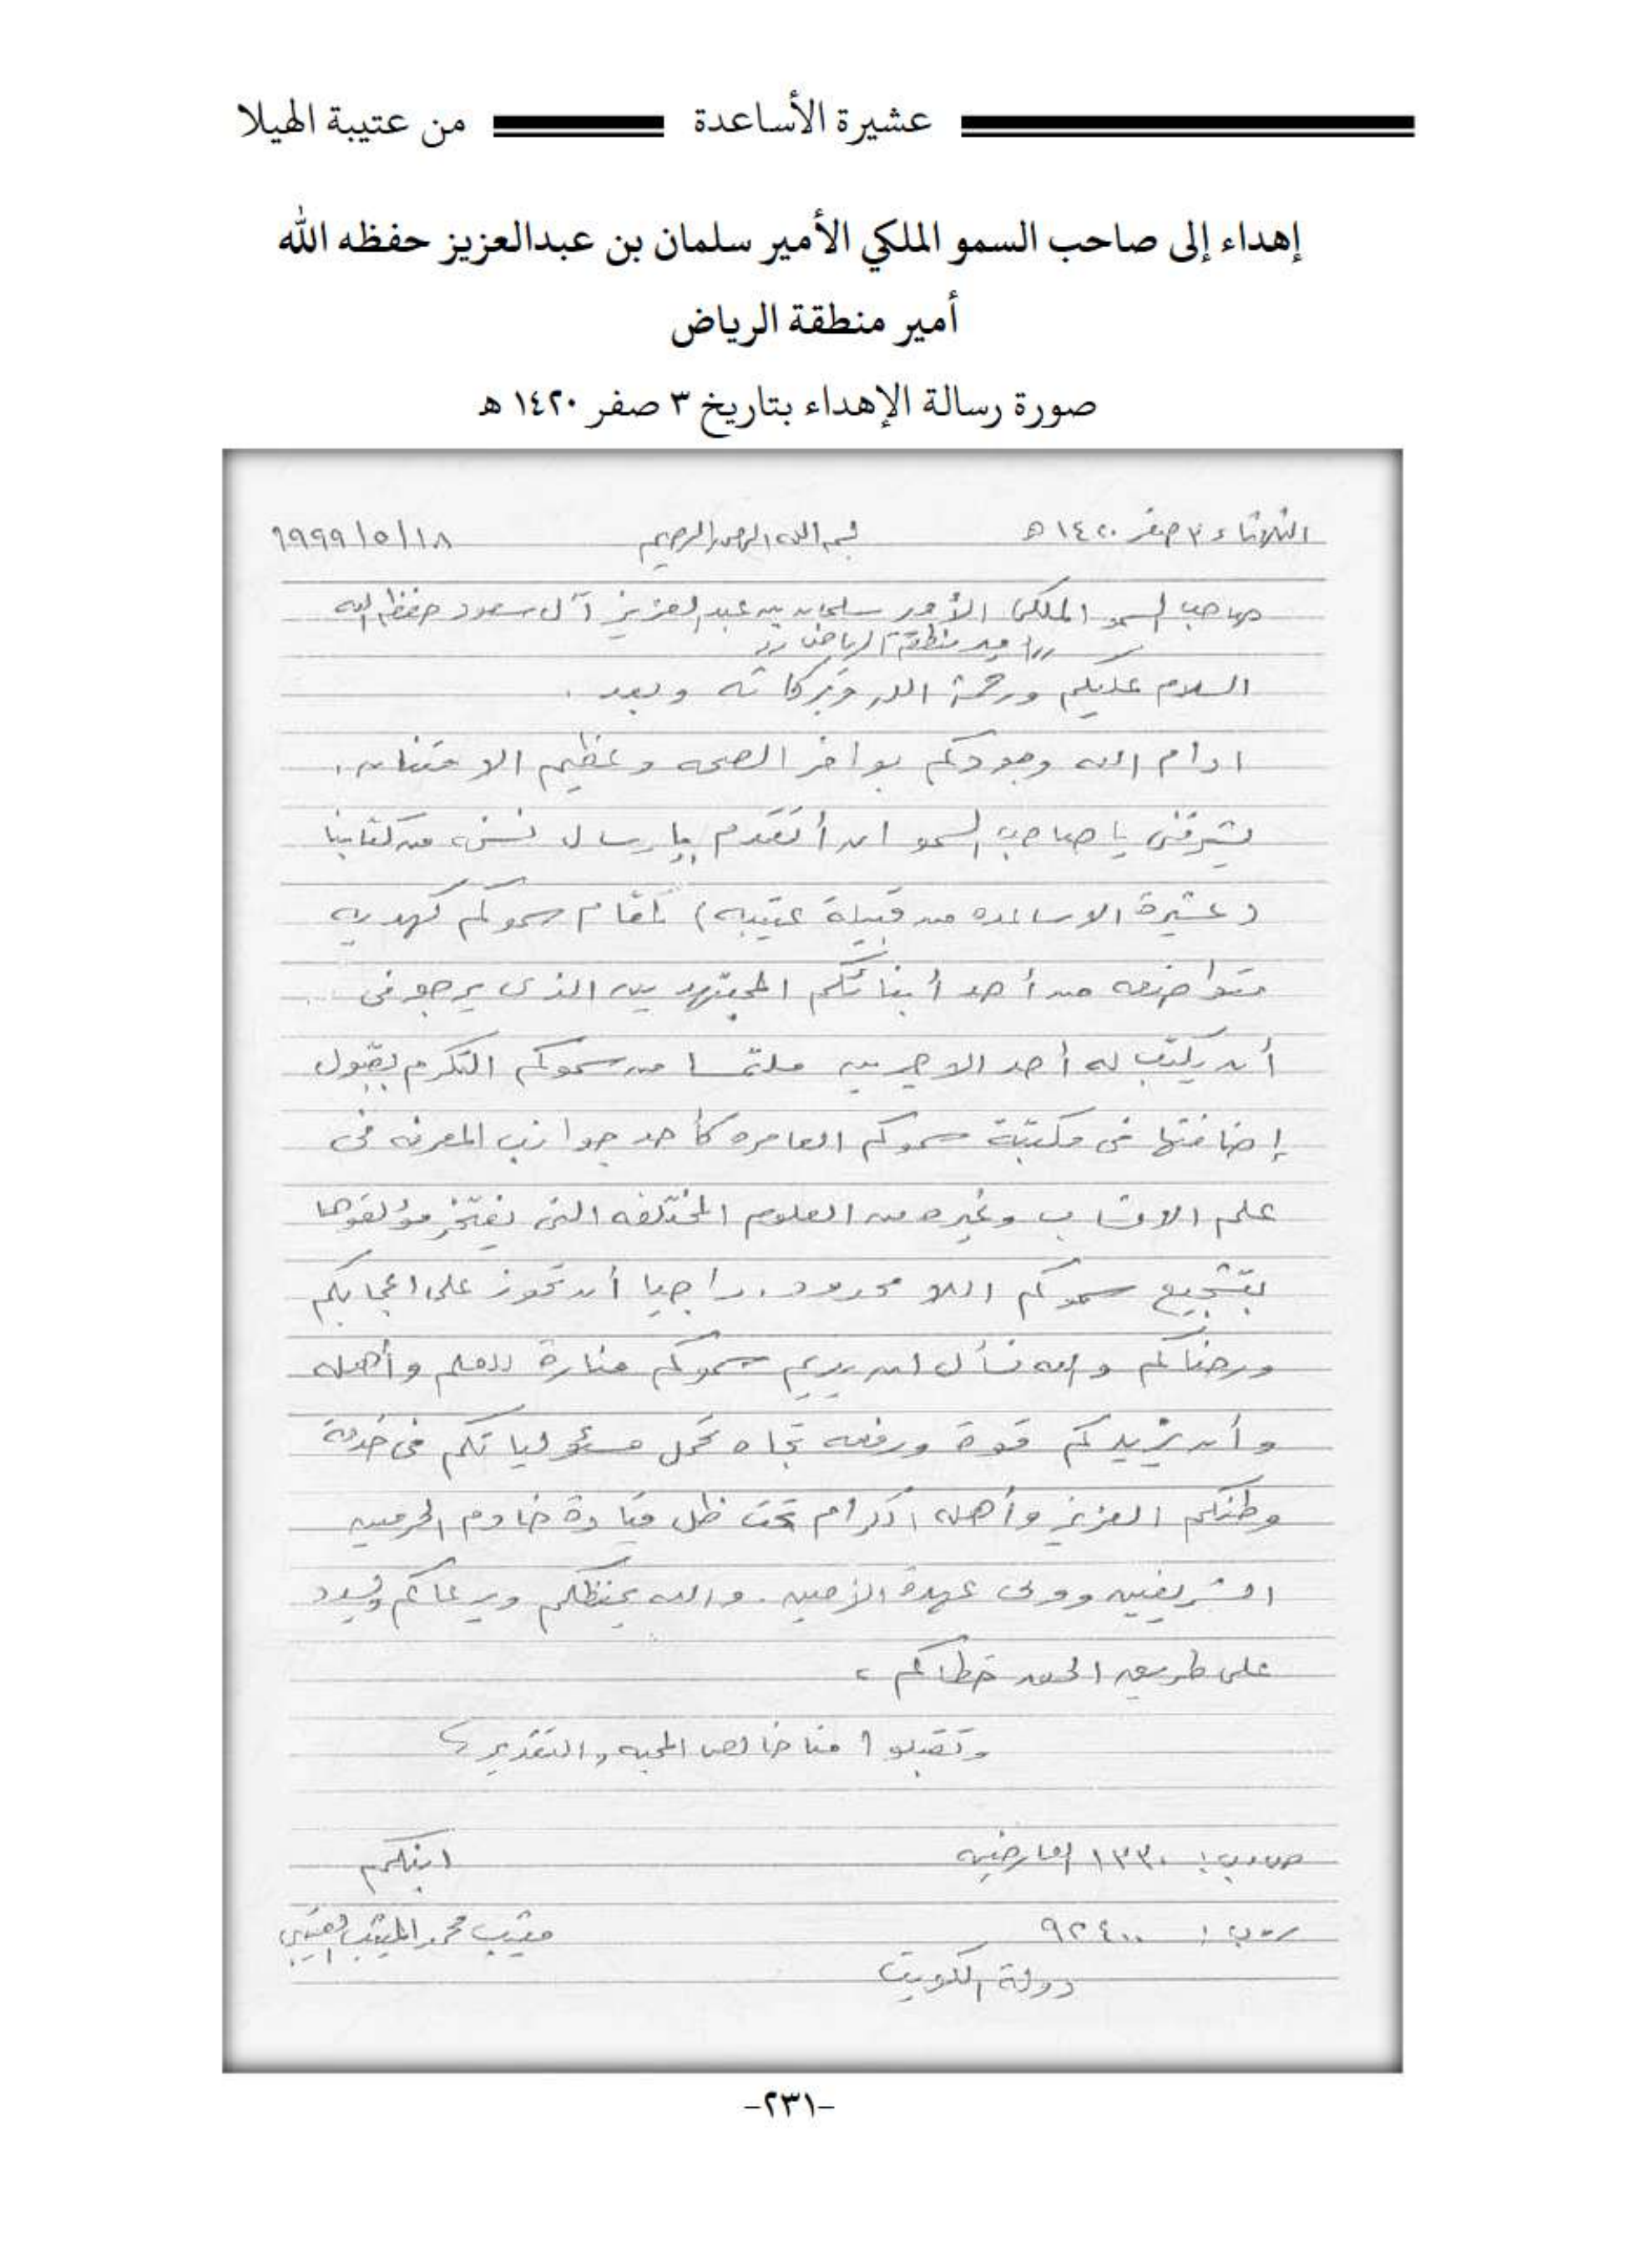 عشيرة الأساعدة من عتيبة الهيلا
إهداء إلى صاحب السمو الملكي الأمير سلمان بن عبدالعزيز حفظه الله
أمير منطقة الرياض
صورة رسالة الإهداء بتاريخ ٣ صفر ١٤٢٠ هـ
الثلاثاء ٣ صفر ١٤٢٠ هـ بسم الله الرحمن الرحيم ١٩٩٩/٥/١٨
صاحب السمو الملكي الأمير سلمان بن عبد العزيز آل سعود حفظه الله
،، أمير منطقة الرياض ،،
السلام عليكم ورحمة الله وبركاته وبعد .
ادام الله وجودكم بوافر الصحه وعظيم الامتنان.
يشرفني يا صاحب السمو ان أتقدم بإرسال نسخ من كتابنا
(عشيرة الاساعده من قبيلة عتيبه) لمقام سموكم كهديه
متواضعه من أحد أبنائكم المجتهدين الذي يرجو في
أن يكتب له أحد الاجرين ملتمسا من سموكم التكرم بقبول
إضافتها في مكتبة سموكم العامره كأحد جوانب المعرفه في
علم الانساب وغيره من العلوم المختلفه التي يفتخر مؤلفوها
بتشجيع سموكم اللا محدود. راجيا أن تحوز على اعجابكم
ورضاكم والله نسأل ان يديم سموكم منارة للعلم وأهله
وأن يزيدكم قوة ورفعه تجاه تحمل مسئولياتكم في خدمة
وطنكم العزيز وأهله الكرام تحت ظل قيادة خادم الحرمين
الشريفين وولى عهدة الأمين. والله يحفظكم ويرعاكم ويسدد
على طريق الحق خطاكم ،
وتقبلوا منا خالص المحبه والتقدير ،
ص.ب: ١٣٣٠ العارضيه ابنكم
ر.ب: ٩٢٤٠٠ متيب محمد العتيبي
دولة الكويت
-٢٣١-